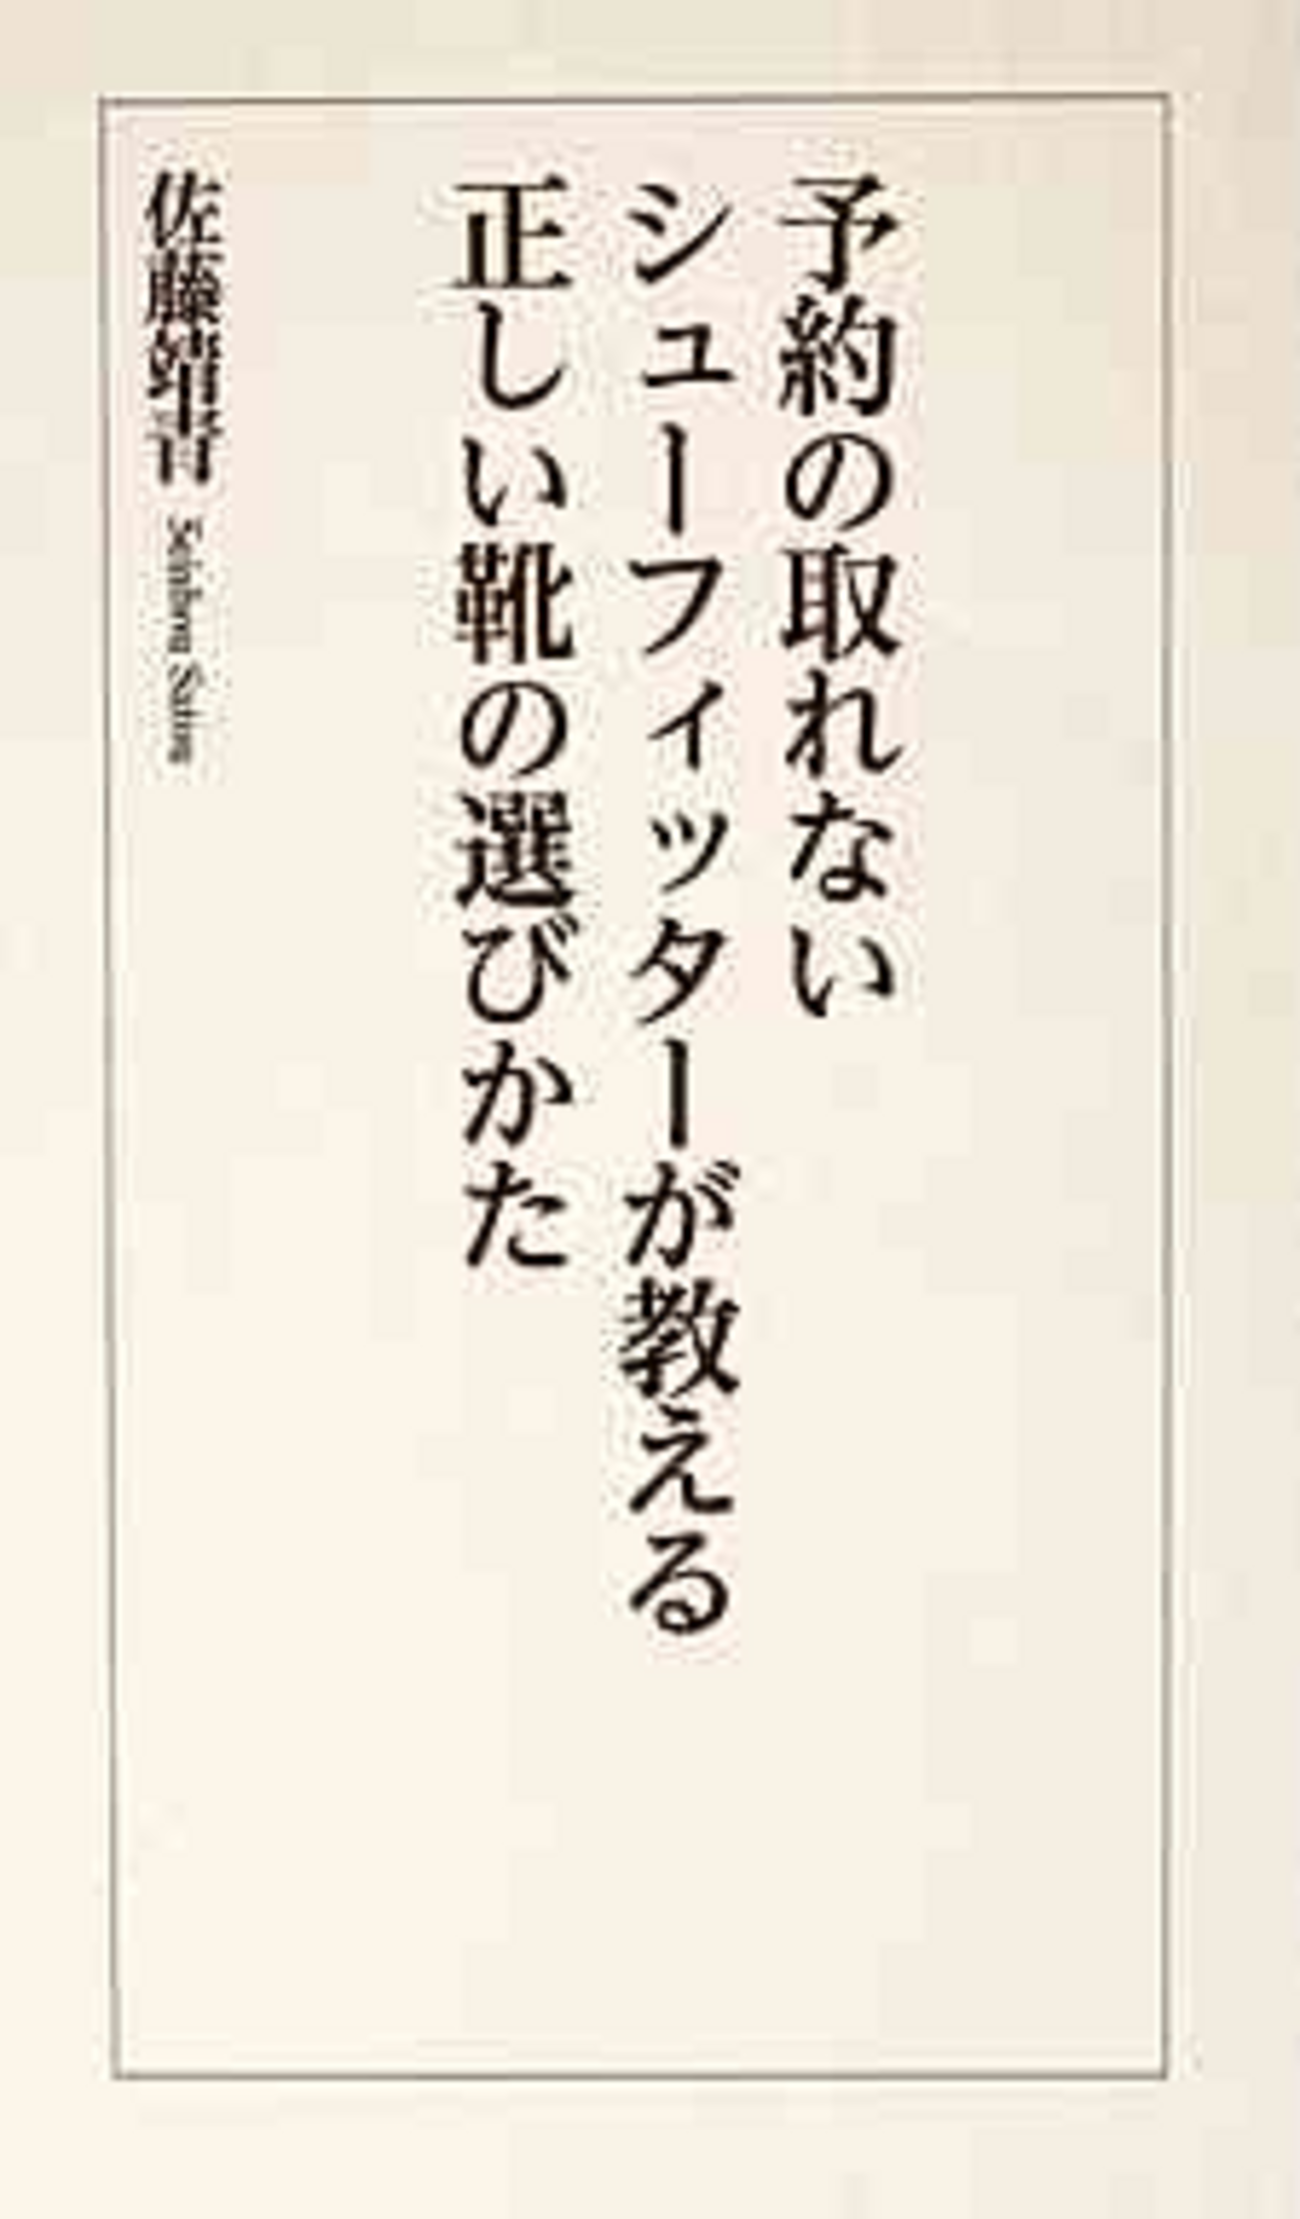 予約の取れない
シューフィッターが教える
正しい靴の選びかた
佐藤靖青 Seishou Satou